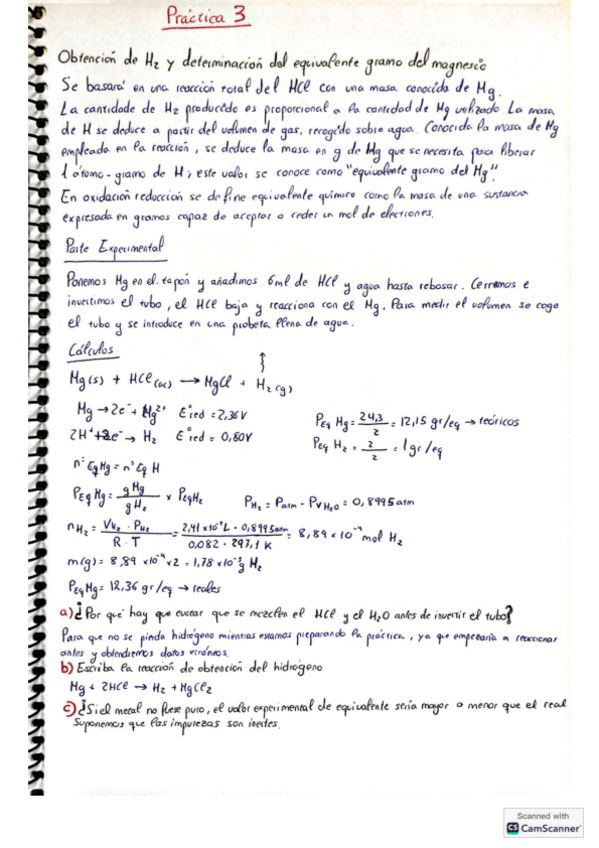 Práctica 3
Obtención de H₂ y determinación del equivalente gramo del magnesio
Se basará en una reacción total del HCl con una masa conocida de Mg.
La cantidade de H₂ producido es proporcional a la cantidad de Mg utilizado. La masa
de H se deduce a partir del volumen de gas, recogido sobre agua. Conocida la masa de Mg
empleada en la reacción, se deduce la masa en g de Mg que se necesita para liberar
1 átomo-gramo de H; este valor se conoce como "equivalente gramo del Mg".
En oxidación reducción se define equivalente químico como la masa de una sustancia
expresada en gramos capaz de aceptar o ceder un mol de electrones.
Parte Experimental
Ponemos Mg en el tapón y añadimos 6ml de HCl y agua hasta rebosar. Cerramos e
invertimos el tubo, el HCl baja y reacciona con el Mg. Para medir el volumen se coge
el tubo y se introduce en una probeta llena de agua.
Cálculos
Mg(s) + HCl(ac) → MgCl + H₂(g) ↑
Mg → 2e⁻ + Mg²⁺ E°red = 2,36V
2H⁺ + 2e⁻ → H₂ E°red = 0,80V
PEq Mg = 24,3/2 = 12,15 gr/eq → teóricos
PEq H₂ = 2/2 = 1 gr/eq
n° Eq Mg = n° Eq H
PEq Mg = g Mg / g H₂ × PEqH₂ PH₂ = Patm - PvH₂O = 0,8995 atm
nH₂ = VH₂ · PH₂ / R · T = 2,41×10⁻²L · 0,8995atm / 0,082 · 297,1 K = 8,89 × 10⁻⁴ mol H₂
m(g) = 8,89 × 10⁻⁴ × 2 = 1,78 × 10⁻³ g H₂
PEqMg = 12,36 gr/eq → reales
a) ¿Por qué hay que evitar que se mezclen el HCl y el H₂O antes de invertir el tubo?
Para que no se pierda hidrógeno mientras estamos preparando la práctica, ya que empezaría a reaccionar
antes y obtendremos datos erróneos.
b) Escriba la reacción de obtención del hidrógeno
Mg + 2HCl → H₂ + MgCl₂
c) ¿Si el metal no fuese puro, el valor experimental de equivalente sería mayor o menor que el real
Suponemos que las impurezas son inertes.
Scanned with
CS CamScanner